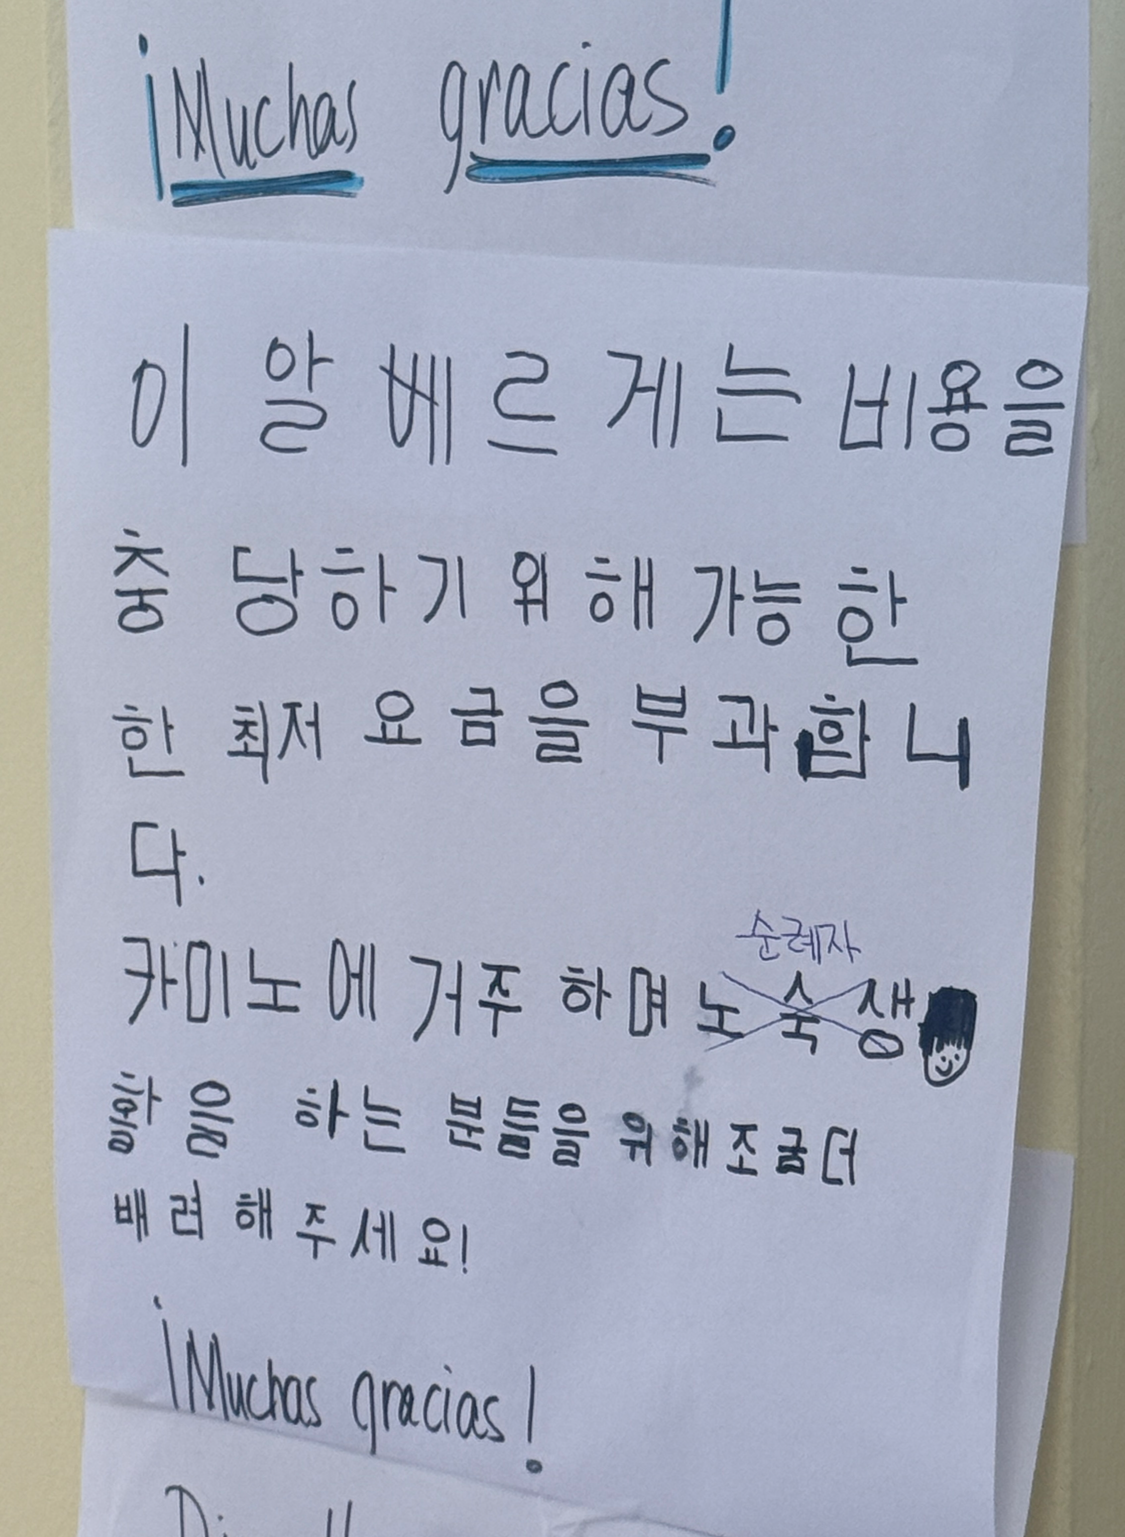 ¡Muchas gracias!
이 알베르게는 비용을
충당하기 위해 가능한
한 최저 요금을 부과합니
다.
순례자
카미노에 거주하며 노숙생
활을 하는 분들을 위해 조금더
배려해주세요!
¡Muchas gracias!